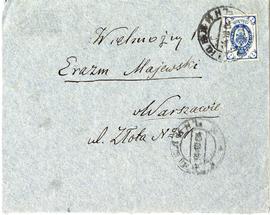 Wielmożny
Erazm Majewski
w Warszawie
ul. Złota N